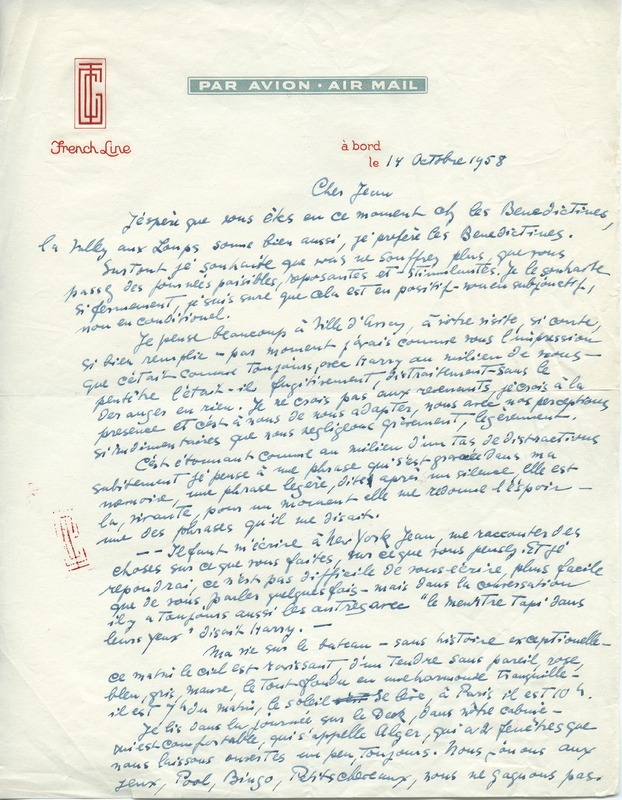 CGT
PAR AVION · AIR MAIL
French Line
à bord
le 14 Octobre 1958
Cher Jean
J'éspère que vous êtes en ce moment chez les Benedictines,
la Vallly aux Loups sonne bien aussi, je préfère les Benedictines.
Surtout je souhaite que vous ne souffrez plus, que vous
passez des journées paisibles, reposantes et stimulantes. Je le souhaite
si fermement, je suis sure que cela est en positif - non en subjonctif,
non en conditionel.
Je pense beaucoup à Ville d'Avray, à votre visite, si courte,
si bien remplie - par moment j'avais comme vous l'impression
que c'était comme toujours, avec Harry au milieu de nous -
peutêtre l'était-il fugitivement, distraitement - sans le
deranger en rien. Je ne crois pas aux revenants, je crois à la
presence et c'est à nous de nous adapter, nous avec nos perceptions
si rudimentaires que nous negligeons grièvement, legèrement.
C'est étonnant comme au milieu d'un tas de distractions
subitement je pense à une phrase qui s'est gravée dans ma
memoire, une phrase legère, dite après un silence elle est
la, vivante, pour un moment elle me redonne l'éspoir -
une des phrases qu'il me disait.
-- Il faut m'écrire à New York Jean, me raconter des
choses sur ce que vous faites, sur ce que vous pensez. Et je
repondrai, ce n'est pas difficile de vous écrire, plus facile
que de vous parler quelques fois - mais dans la conversation
il y a toujours aussi les autres avec "le meurtre tapi dans
leurs yeux" disait Harry. -
Ma vie sur le bateau - sans histoire exceptionelle -
ce matin le ciel est ravissant, d'un tendre sans pareil, rose,
bleu, gris, mauve, le tout fondu en une harmonie tranquille -
il est 7 h du matin, le soleil se lève, à Paris il est 10 h.
Je lis dans la journée sur le Deck, dans nôtre cabine -
qui est confortable, qui s'appelle Alger, qui a 2 fenêtres que
nous laissons ouvertes un peu, toujours. Nous jouons aux
jeux, Pool, Bingo, Petits chevaux, nous ne gagnons pas.